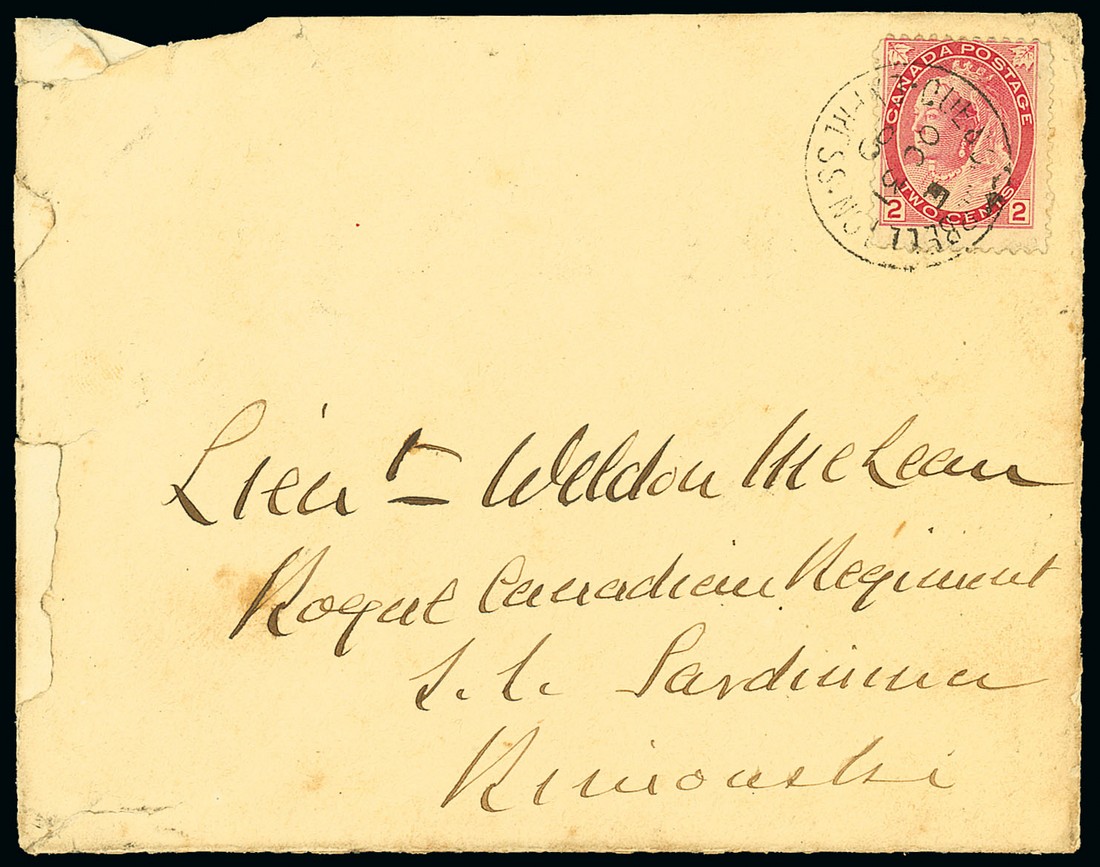 CANADA POSTAGE
2 TWO CENTS 2
QUEBEC & CAMPBELLTON.
E
OC 30
99
Lieut Weldon McLean
Royal Canadian Regiment
S. S. Sardinian
Rimouski